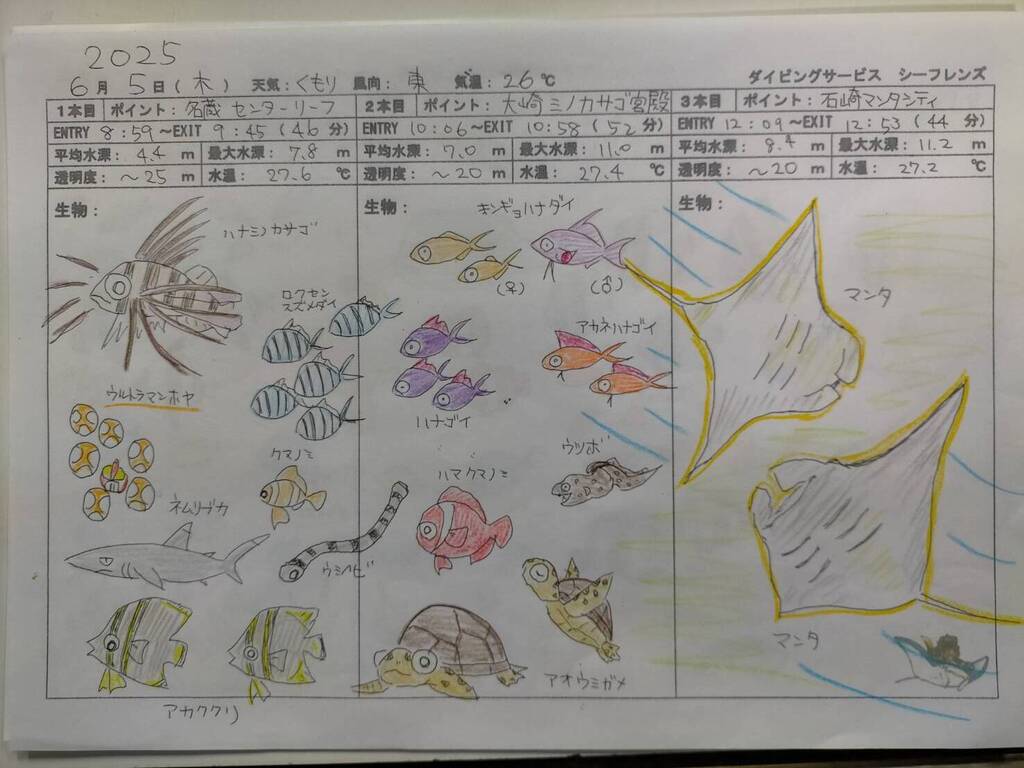 2025
6月 5日(木) 天気:くもり 風向:東 気温:26℃ ダイビングサービス シーフレンズ
1本目 ポイント:名蔵 センターリーフ
ENTRY 8:59~EXIT 9:45(46分)
平均水深: 4.4 m 最大水深: 7.8 m
透明度: ~25 m 水温: 27.6 ℃
生物:
ハナミノカサゴ
ロクセン
スズメダイ
ウルトラマンホヤ
クマノミ
ネムリブカ
ウミヘビ
アカククリ
2本目 ポイント:大崎ミノカサゴ宮殿
ENTRY 10:06~EXIT 10:58(52分)
平均水深: 7.0 m 最大水深: 11.0 m
透明度: ~20 m 水温: 27.4 ℃
生物:
キンギョハナダイ
(♀) (♂)
アカネハナゴイ
ハナゴイ
ウツボ
ハマクマノミ
アオウミガメ
3本目 ポイント:石崎マンタシティ
ENTRY 12:09~EXIT 12:53(44分)
平均水深: 8.4 m 最大水深: 11.2 m
透明度: ~20 m 水温: 27.2 ℃
生物:
マンタ
マンタ